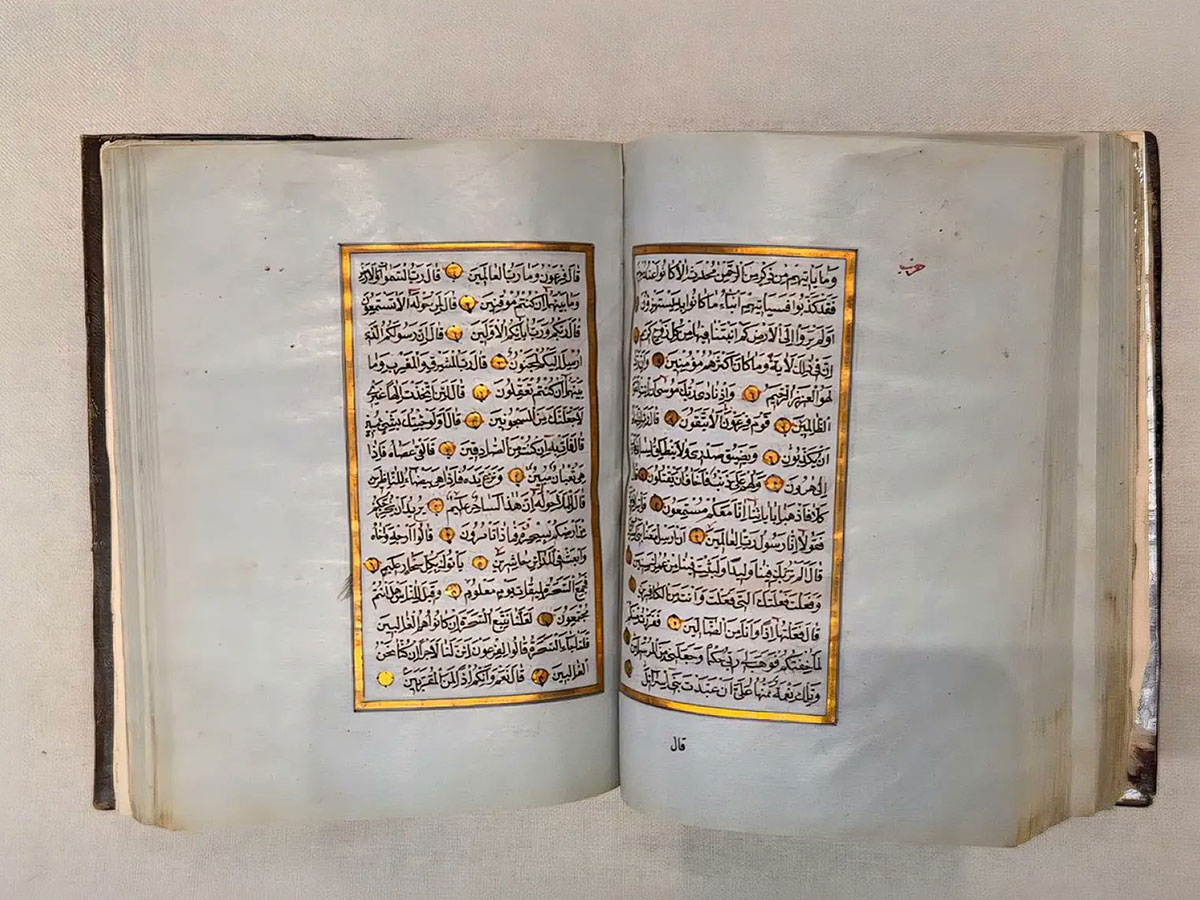 حزب
وما يأتيهم من ذكر من الرحمن محدث الا كانوا عنه معرضين
فقد كذبوا فسيأتيهم انباء ما كانوا به يستهزؤن
اولم يروا الى الارض كم انبتنا فيها من كل زوج كريم
ان في ذلك لاية وما كان اكثرهم مؤمنين وان ربك
لهو العزيز الرحيم واذ نادى ربك موسى ان ائت القوم
الظالمين قوم فرعون الا يتقون قال رب اني اخاف
ان يكذبون ويضيق صدري ولا ينطلق لساني فارسل
الى هرون ولهم علي ذنب فاخاف ان يقتلون قال
كلا فاذهبا باياتنا انا معكم مستمعون فأتيا فرعون
فقولا انا رسول رب العالمين ان ارسل معنا بني اسرائيل
قال الم نربك فينا وليدا ولبثت فينا من عمرك سنين
وفعلت فعلتك التي فعلت وانت من الكافرين
قال فعلتها اذا وانا من الضالين ففررت منكم
لما خفتكم فوهب لي ربي حكما وجعلني من المرسلين
وتلك نعمة تمنها علي ان عبدت بني اسرائيل
قال
قال فرعون وما رب العالمين قال رب السموات والارض
وما بينهما ان كنتم موقنين قال لمن حوله الا تستمعون
قال ربكم ورب ابائكم الاولين قال ان رسولكم الذي
ارسل اليكم لمجنون قال رب المشرق والمغرب وما
بينهما ان كنتم تعقلون قال لئن اتخذت الها غيري
لاجعلنك من المسجونين قال اولو جئتك بشيء مبين
قال فأت به ان كنت من الصادقين فالقى عصاه فاذا
هي ثعبان مبين ونزع يده فاذا هي بيضاء للناظرين
قال للملا حوله ان هذا لساحر عليم يريد ان يخرجكم
من ارضكم بسحره فماذا تأمرون قالوا ارجه واخاه
وابعث في المدائن حاشرين يأتوك بكل سحار عليم
فجمع السحرة لميقات يوم معلوم وقيل للناس هل انتم
مجتمعون لعلنا نتبع السحرة ان كانوا هم الغالبين
فلما جاء السحرة قالوا لفرعون ائن لنا لاجرا ان كنا نحن
الغالبين قال نعم وانكم اذا لمن المقربين